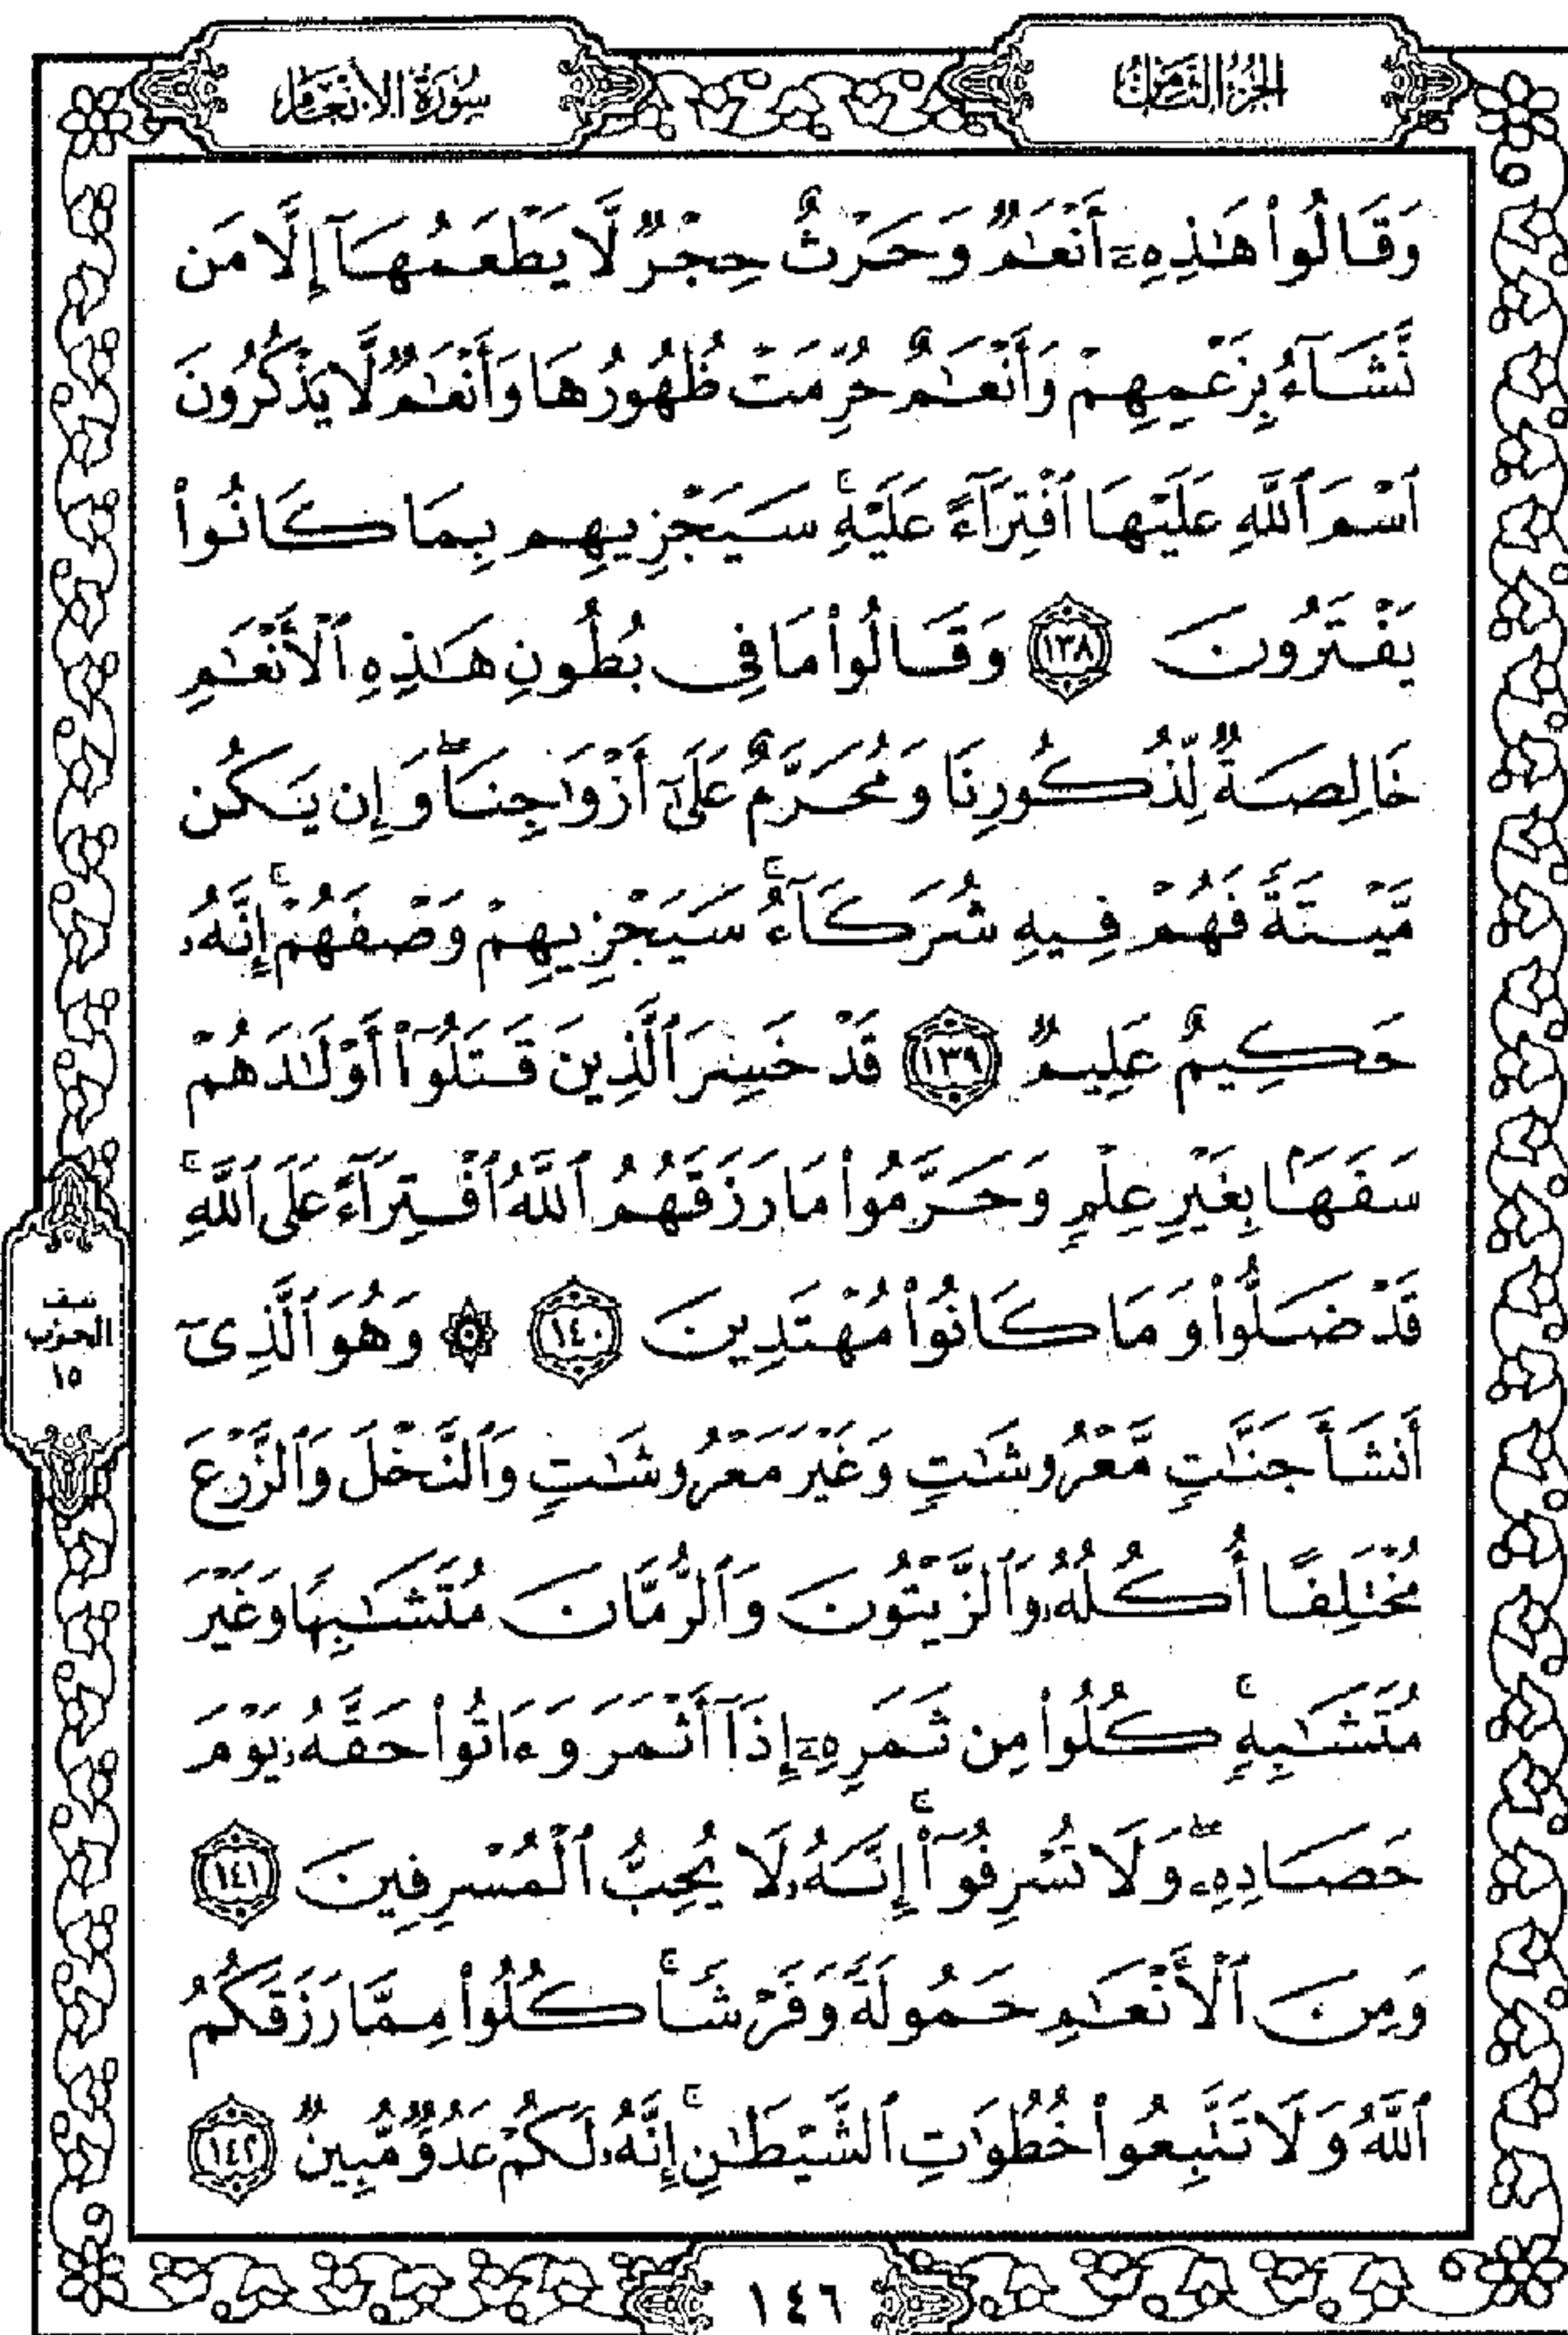 الجزء الثامن
سورة الأنعام
وَقَالُوا۟ هَـٰذِهِۦٓ أَنْعَـٰمٌ وَحَرْثٌ حِجْرٌ لَّا يَطْعَمُهَآ إِلَّا مَن
نَّشَآءُ بِزَعْمِهِمْ وَأَنْعَـٰمٌ حُرِّمَتْ ظُهُورُهَا وَأَنْعَـٰمٌ لَّا يَذْكُرُونَ
ٱسْمَ ٱللَّهِ عَلَيْهَا ٱفْتِرَآءً عَلَيْهِ ۚ سَيَجْزِيهِم بِمَا كَانُوا۟
يَفْتَرُونَ ١٣٨ وَقَالُوا۟ مَا فِى بُطُونِ هَـٰذِهِ ٱلْأَنْعَـٰمِ
خَالِصَةٌ لِّذُكُورِنَا وَمُحَرَّمٌ عَلَىٰٓ أَزْوَٰجِنَا ۖ وَإِن يَكُن
مَّيْتَةً فَهُمْ فِيهِ شُرَكَآءُ ۚ سَيَجْزِيهِمْ وَصْفَهُمْ ۚ إِنَّهُۥ
حَكِيمٌ عَلِيمٌ ١٣٩ قَدْ خَسِرَ ٱلَّذِينَ قَتَلُوٓا۟ أَوْلَـٰدَهُمْ
سَفَهًۢا بِغَيْرِ عِلْمٍ وَحَرَّمُوا۟ مَا رَزَقَهُمُ ٱللَّهُ ٱفْتِرَآءً عَلَى ٱللَّهِ ۚ
قَدْ ضَلُّوا۟ وَمَا كَانُوا۟ مُهْتَدِينَ ١٤٠ ۞ وَهُوَ ٱلَّذِىٓ
أَنشَأَ جَنَّـٰتٍ مَّعْرُوشَـٰتٍ وَغَيْرَ مَعْرُوشَـٰتٍ وَٱلنَّخْلَ وَٱلزَّرْعَ
مُخْتَلِفًا أُكُلُهُۥ وَٱلزَّيْتُونَ وَٱلرُّمَّانَ مُتَشَـٰبِهًا وَغَيْرَ
مُتَشَـٰبِهٍ ۚ كُلُوا۟ مِن ثَمَرِهِۦٓ إِذَآ أَثْمَرَ وَءَاتُوا۟ حَقَّهُۥ يَوْمَ
حَصَادِهِۦ ۖ وَلَا تُسْرِفُوٓا۟ ۚ إِنَّهُۥ لَا يُحِبُّ ٱلْمُسْرِفِينَ ١٤١
وَمِنَ ٱلْأَنْعَـٰمِ حَمُولَةً وَفَرْشًا ۚ كُلُوا۟ مِمَّا رَزَقَكُمُ
ٱللَّهُ وَلَا تَتَّبِعُوا۟ خُطُوَٰتِ ٱلشَّيْطَـٰنِ ۚ إِنَّهُۥ لَكُمْ عَدُوٌّ مُّبِينٌ ١٤٢
نصف
الحزب
١٥
١٤٦